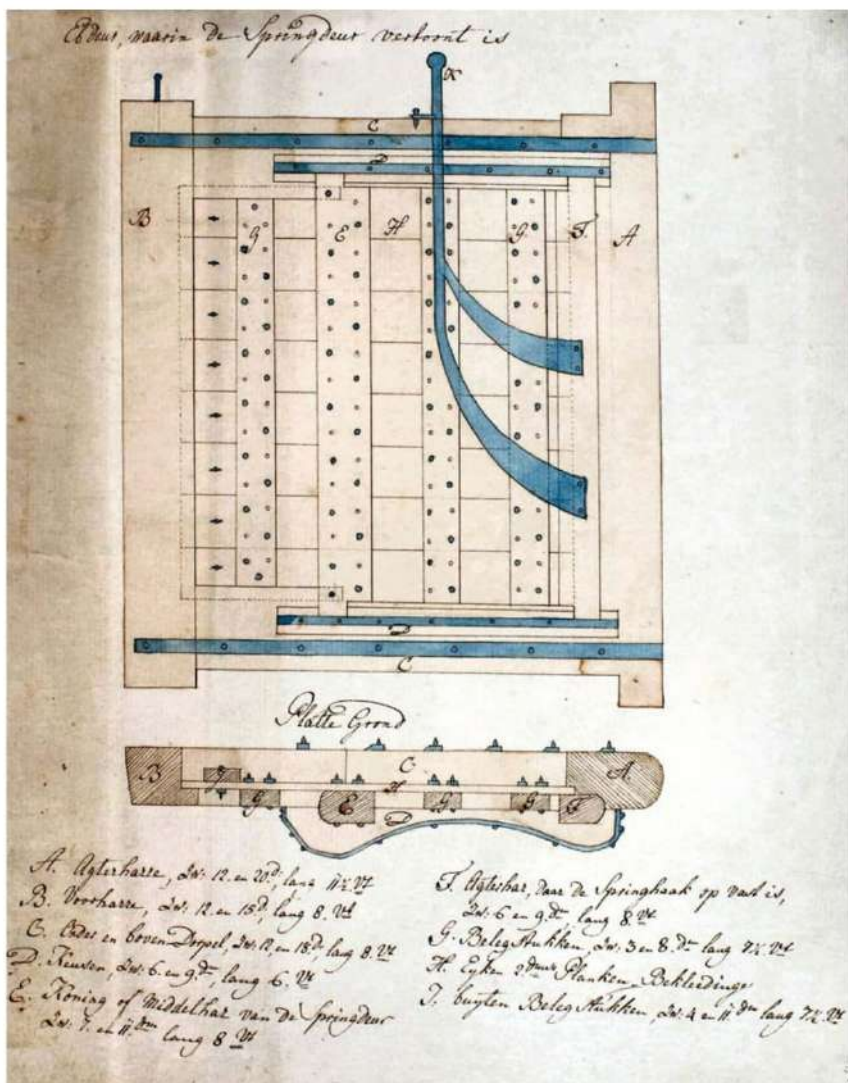 Ebdeur, waarin de Springdeur vertoont is
K
C
D
B
G
E
H
G
F.
A
D
C
Platte Grond
B
J
C
A
H
G
E
G
G
F
D
A. Agterharre, Zw: 12. en 20d., lang 11½ Vt
B. Voorharre, Zw: 12. en 15d, lang 8. Vt
C. Onder en boven Dorpel, Zw: 12, en 18.d, lang 8. Vt
D. Keusen, Zw: 6. en 9.dm, lang 6. Vt
E. Koning of Middelhar van de Springdeur
Zw: 7. en 11.dm lang 8 Vt
F. Agterhar, daar de Springhaak op vast is,
Zw: 6 en 9.dm lang 8. Vt
G. Beleg Stukken, Zw: 3 en 8.dm lang 7½. Vt
H. Eyken 2.dms Planken, Bekleedinge
J. buyten Beleg Stukken, Zw: 4 en 11.dm lang 7½. Vt